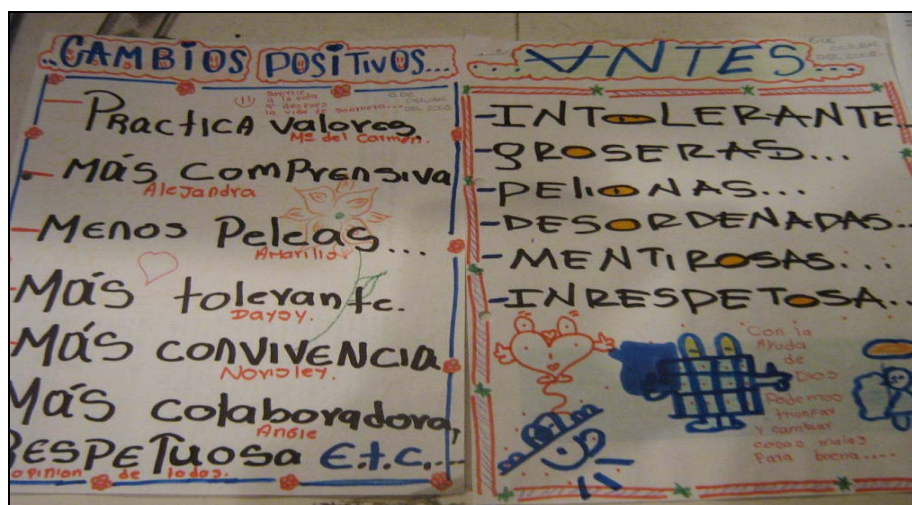 ..CAMBIOS POSITIVOS...
- PRACTICA VALORES
Mª del Carmen.
- MÁS COMPRENSIVA
Alejandra
- MENOS PELEAS...
Amarilis
- MÁS tolerante.
Daysy.
MÁS CONVIVENCIA
Norisley.
MÁS colaboradora,
Angie
RESPETUOSA E.t.c....
opinion de todas.
...ANTES...
- INTOLERANTE..
- GROSERAS...
- PELIONAS...
- DESORDENADAS...
- MENTIROSAS...
- INRESPETOSA...
Con la
Ayuda
de
Dios
Podemos
triunfar
y cambiar
cosas malas
Para buena....